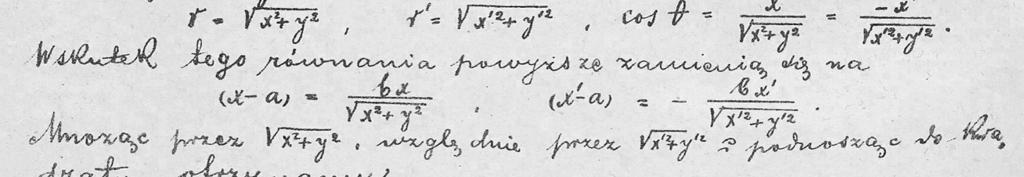 r = √x²+y² , r' = √x'²+y'² , cos θ = x/√x²+y² = -x/√x'²+y'² .
Wskutek tego równania powyższe zamienią się na
(x-a) = bx/√x²+y² , (x'-a) = - bx'/√x'²+y'² .
Mnożąc przez √x²+y², względnie przez √x'²+y'² i podnosząc do kwa,
dratu otrzymamy: